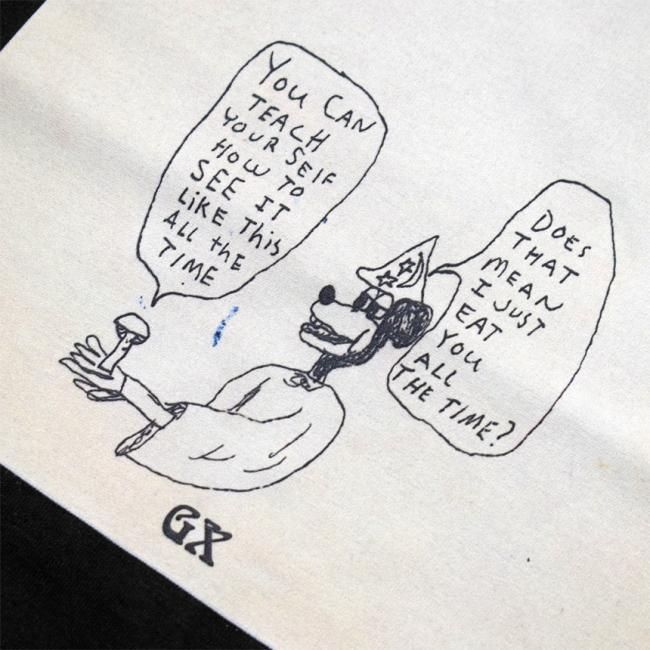 YOU CAN
TEACH
YOUR SELF
HOW TO
SEE IT
LIKE THIS
ALL tHE
TIME
DOES
THAT
MEAN
I JUST
EAT
YOU
ALL
THE TIME?
GX